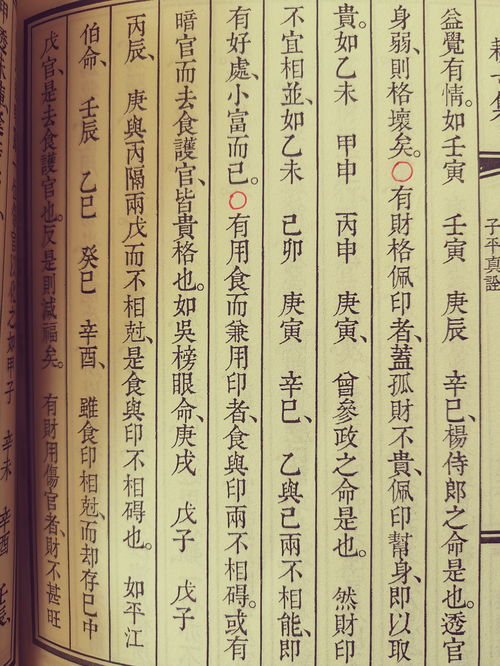 子平真詮
益覺有情。如壬寅 壬寅 庚辰 辛巳、楊侍郎之命是也。透官
身弱、則格壞矣。〇有財格佩印者、蓋孤財不貴、佩印幫身、即以取
貴。如乙未 甲申 丙申 庚寅、曾參政之命是也。 然財印
不宜相並、如乙未 己卯 庚寅 辛巳、乙與己兩不相能、即
有好處、小富而已。〇有用食而兼用印者、食與印兩不相碍。或有
暗官而去食護官、皆貴格也。如吳榜眼命、庚戌 戊子 戊子
丙辰、 庚與丙隔兩戊而不相尅、是食與印不相碍也。 如平江
伯命、 壬辰 乙巳 癸巳 辛酉、 雖食印相尅、而却存巳中
戊官、是去食護官也。反是則減福矣。 有財用傷官者、財不甚旺
之如甲子 辛未 辛酉 壬辰、